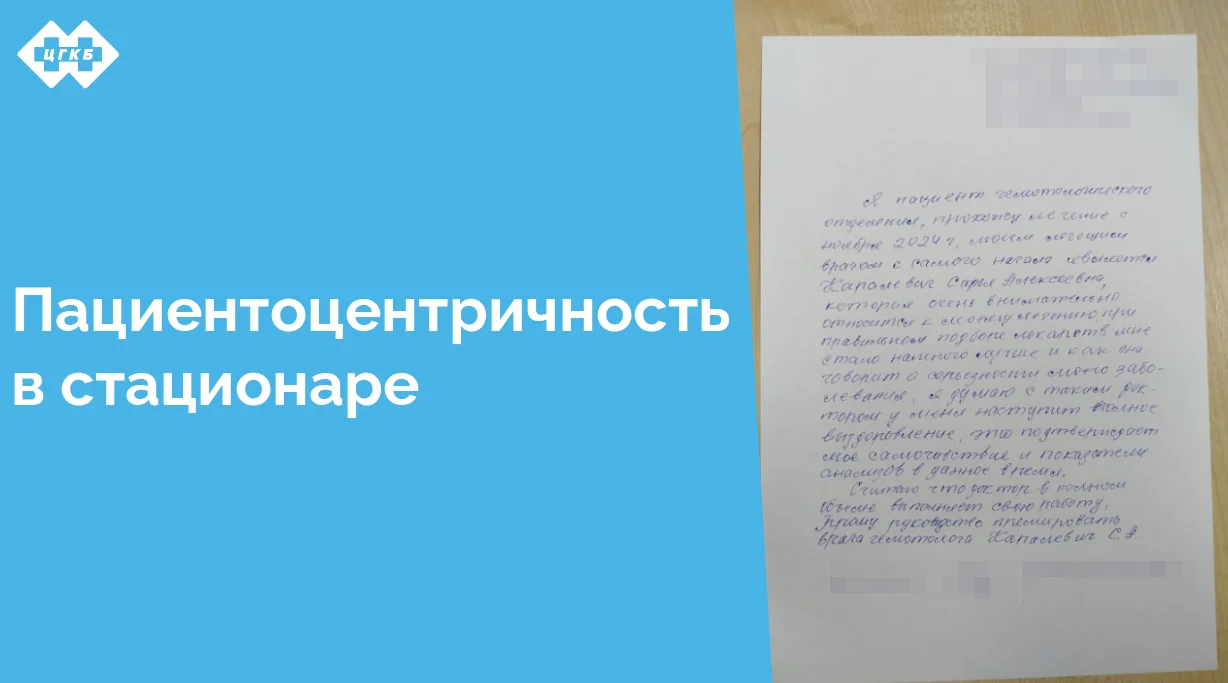 ЦГКБ
Пациентоцентричность
в стационаре
Я пациент гемотологического
отделения, прохожу лечение с
ноября 2024 г, моим лечащим
врачом с самого начала является
Каралевич Сарья Алексеевна,
которая очень внимательно
относится к моему лечению, при
правильном подборе лекарств мне
стало намного лучше и как она
говорит о серьезности моего забо-
левания, я думаю с таким док-
тором у меня наступит полное
выздоровление, это подтверждает
мое самочувствие и показатели
анализов в данное время.
Считаю что доктор в полном
объеме выполняет свою работу,
прошу руководство премировать
врача гемотолога Каралевич С.А.